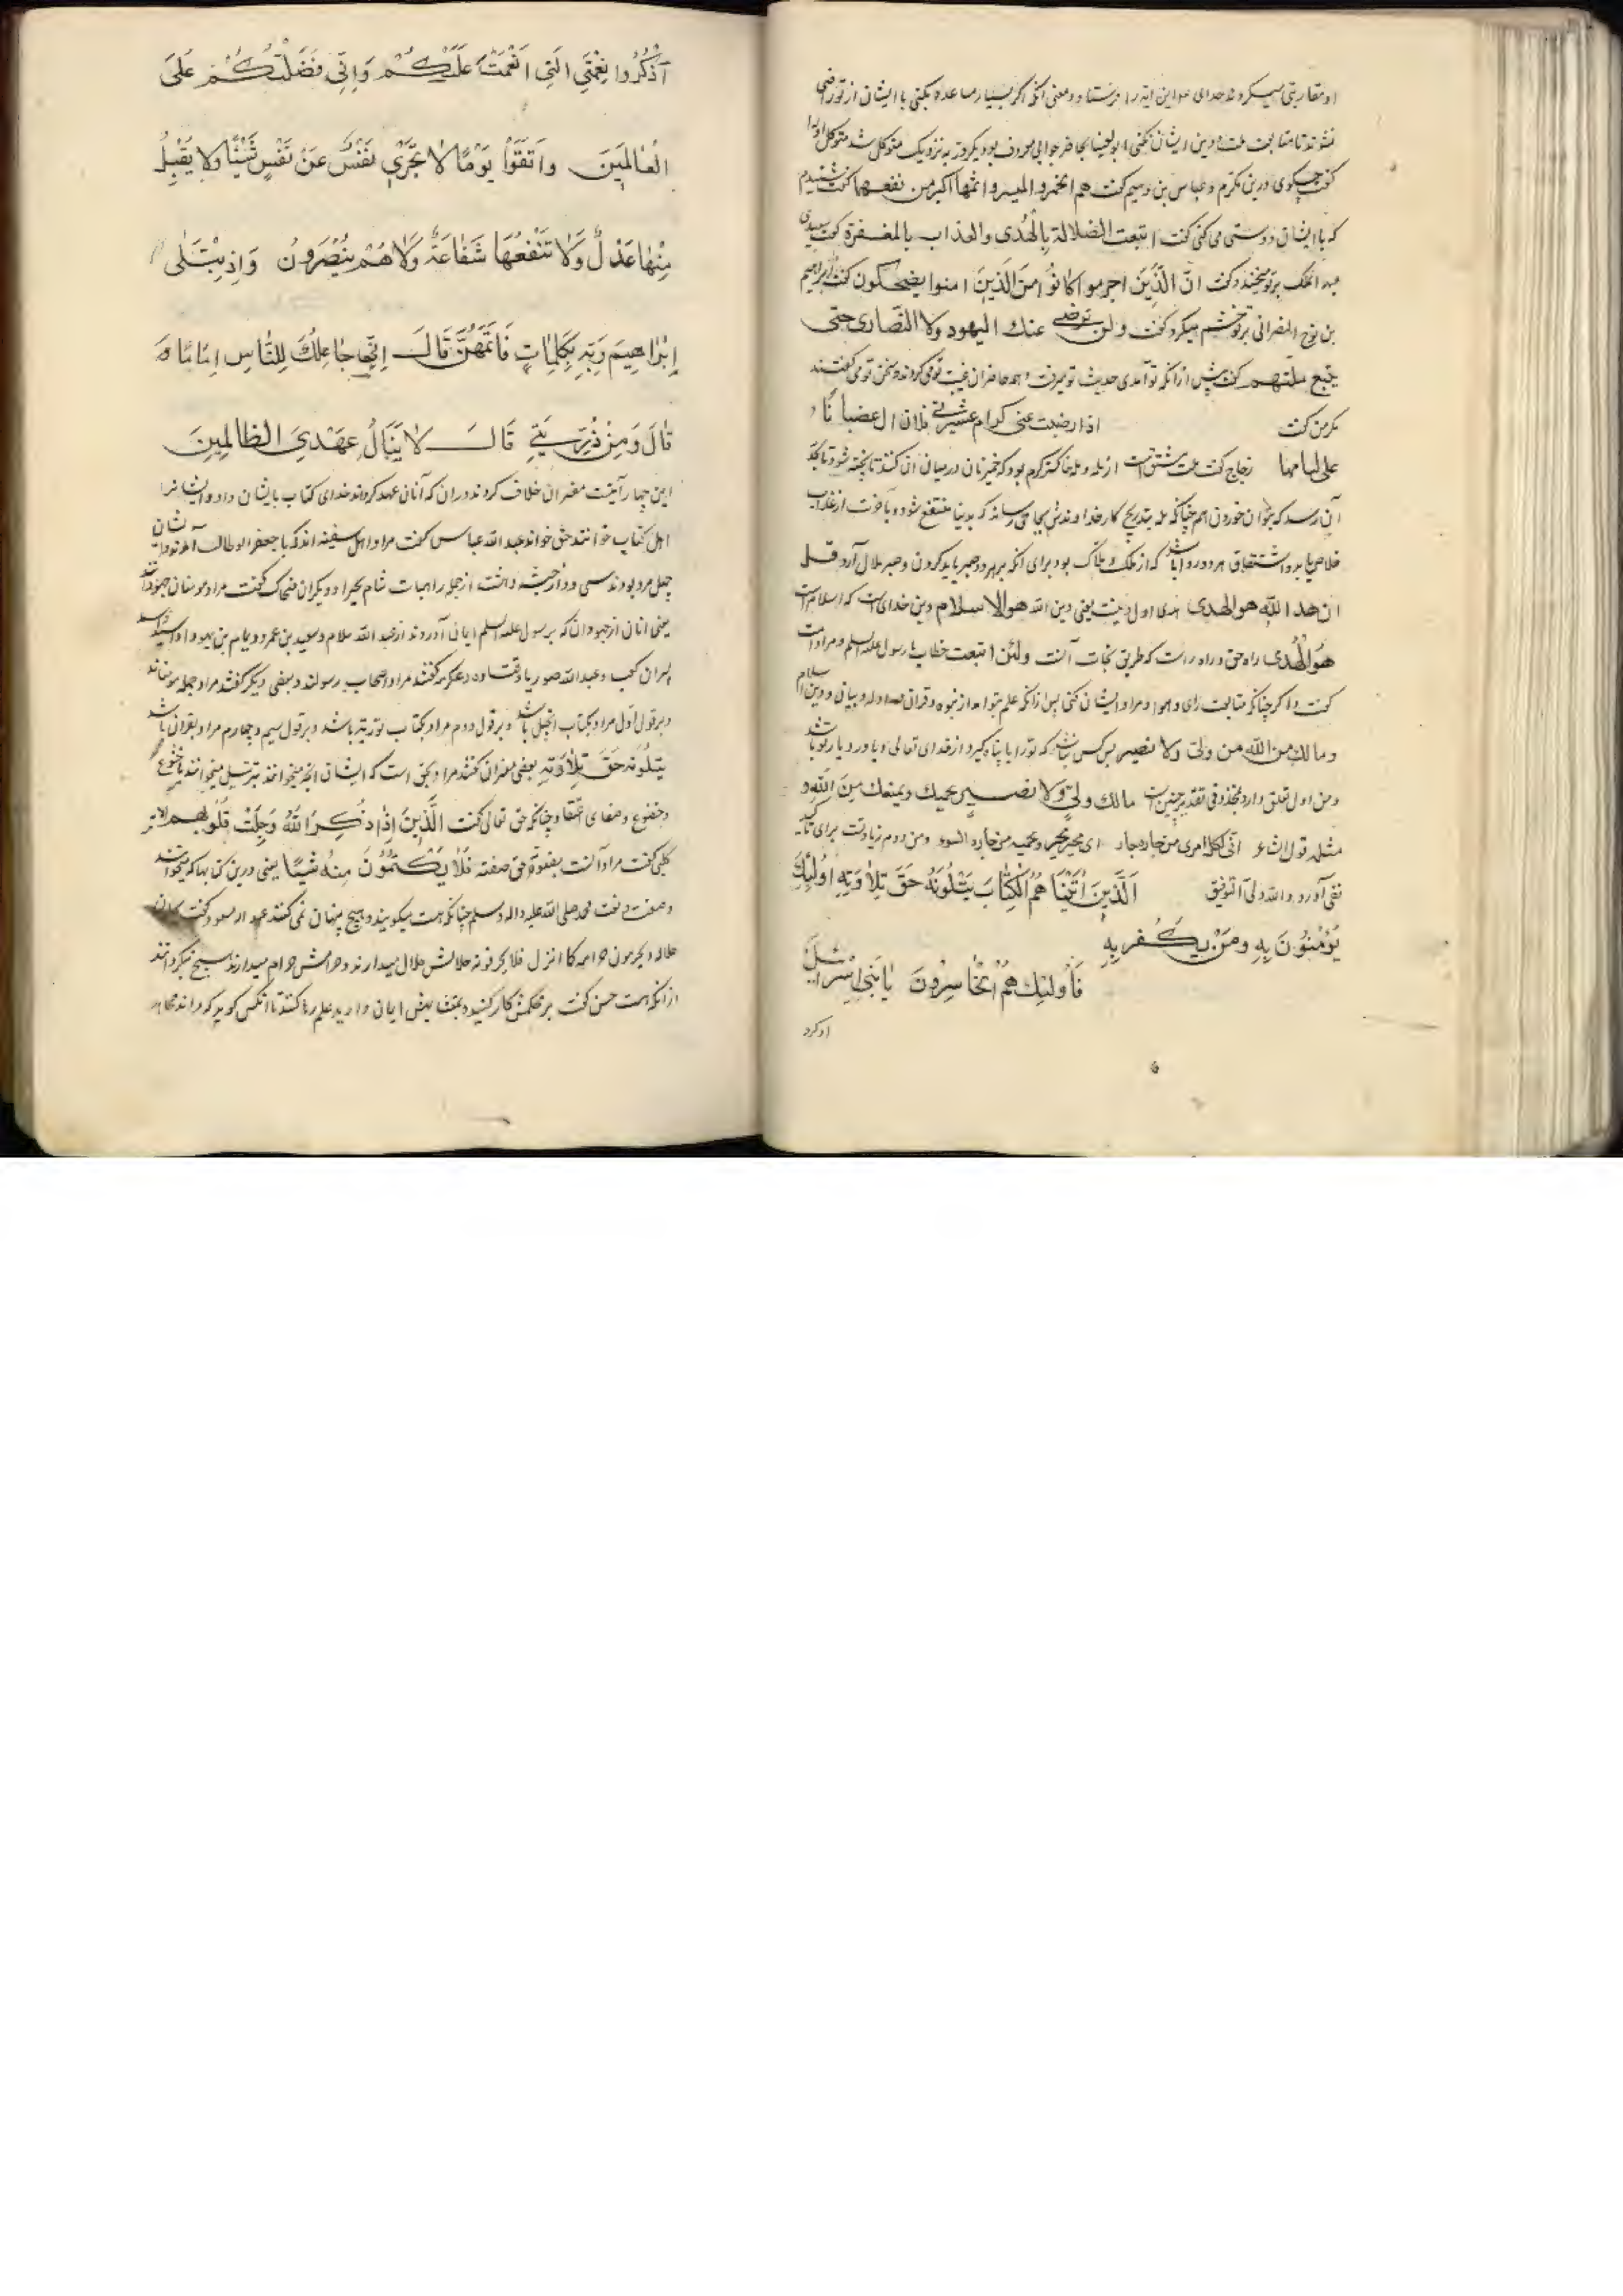 او مقاربتی میکردند خدای این آیه را فرستاد و معنی آنکه اگر بسیار مساعده بکنی با ایشان از تو راضی
نشوند تا متابعت ملت و دین ایشان نکنی ابو العینا بحاضر جوابی معروف بود یکروز به نزدیک متوکل شد متوکل او را
گفت چگوی درین مکرم و عباس بن رستم گفت هم الخمر والمیسر واثمهما اکبر من نفعهما گفت شنیدم
که با ایشان دوستی می کنی گفت ابتعت الضلالة بالهدی والعذاب بالمغفرة گفت سعیدی
عبد الملک بر تو میخندد گفت ان الذین اجرموا کانوا من الذین امنوا یضحکون گفت ابراهیم
بن نوح النصرانی بر تو خشم میکرد گفت ولن ترضی عنك الیهود ولا النصاری حتی
یتبع ملتهم گفت پیش از آنکه تو آمدی حدیث تو میرفت و همه حاضران غیبت تو می کردند و سخن تو می گفتند
مگر من گفت اذا رضیت عنی کرام عشیرتی فلا زال غضبانا
علی لیامها زجاج گفت ملت مشتق است از مله و مله خاکستر گرم بود که خمیر نان در میان آن کنند تا پخته شود تا بحد
آن رسد که بتوان خوردن همچنانکه مله بتدریج کار خداوندش بجای میرساند که بدنیا منتفع شود و بآخرت از عذاب
خلاص یابد و اشتقاق هر دو روا باشد که از ملک و ملال بود برای آنکه بر هر دو صبر باید کردن و صبر ملال آرد قل
ان هدا الله هو الهدی هدی اول دینست یعنی دین الله هو الاسلام دین خدای است که اسلام است
هو الهدی راه حق و راه راست که طریق نجات آنست ولئن اتبعت خطاب با رسول علیه السلم و مراد امت
گفت و اگر چنانکه متابعت رای و هوا و مراد ایشان کنی پس از آنکه علم بتو آمد از نبوه و قران و ادله و بیانی و دین اسلام
وما لك من الله من ولی ولا نصیر پس کس نباشد که ترا با پناه گیرد از خدای تعالی و یاور و یار تو باشد
و من اول تعلق دارد بمحذوفی تقدیر چنین است مالك ولی ولا نصیر یحمیك ویمنعك من الله و
مثله قول الشاعر انی لکل امری من جاره جار ای مجیر یجیر و یحمیه من جاره السوء و من دوم زیادتست برای تاکید
نفی آورد و الله ولی التوفیق اَلَّذِینَ اٰتَیْنَاهُمُ الْکِتَابَ یَتْلُونَهُ حَقَّ تِلَاوَتِهِ اُولٰئِكَ
یُؤْمِنُونَ بِهِ وَمَنْ یَکْفُر بِهِ
فَاُولٰئِكَ هُمُ الْخَاسِرُونَ یَا بَنِی اِسْرَائِیلَ
اذکرو
اَذْکُرُوا نِعْمَتِیَ الَّتِی اَنْعَمْتُ عَلَیْکُمْ وَاِنِّی فَضَّلْتُکُمْ عَلَی
الْعَالَمِینَ وَاتَّقُوا یَوْمًا لَا تَجْزِی نَفْسٌ عَنْ نَفْسٍ شَیْئًا وَلَا یُقْبَلُ
مِنْهَا عَدْلٌ وَلَا تَنْفَعُهَا شَفَاعَةٌ وَلَا هُمْ یُنْصَرُونَ وَاِذِ ابْتَلٰی
اِبْرَاهِیمَ رَبُّهُ بِکَلِمَاتٍ فَاَتَمَّهُنَّ قَالَ اِنِّی جَاعِلُكَ لِلنَّاسِ اِمَامًا
قَالَ وَمِنْ ذُرِّیَّتِی قَالَ لَا یَنَالُ عَهْدِی الظَّالِمِینَ
این چهار آیتست مفسران خلاف کردند در آن که آنان عهد کردند خدای کتاب بایشان داد و ایشانرا
اهل کتاب خواند عبد الله عباس گفت مراد اهل سفینه اند که با جعفر ابو طالب آمدند و ایشان
چهل مرد بودند سی و دو از حبشه و هشت از جمله راهبات شام بحیرا و دیگران ضحاک گفت مراد مومنان جهودانند
یعنی آنان از جهودان که برسول علیه السلم ایمان آوردند از عبد الله سلام و سعید بن عمرو و تمام بن یهودا و اسید و اسد
پسران کعب و عبد الله صوریا و قتاده و عکرمه گفتند مراد اصحاب رسولند و بعضی دیگر گفتند مراد جمله مومنانند
و بر قول اول مراد بکتاب انجیل باشد و بر قول دوم مراد بکتاب توریة باشد و بر قول سیم و چهارم مراد بقران باشد
یتلونه حق تلاوته بعضی مفسران گفتند مراد بحق است که ایشان آنچه میخوانند بترتیل میخوانند با خشوع
و خضوع و صفای اعتقاد چنانکه حق تعالی گفت الَّذِینَ اِذَا ذُکِرَ اللهُ وَجِلَتْ قُلُوبُهُم
کلبی گفت مراد آنست بصفوة حق صفته فَلَا یَکْتُمُونَ مِنْهُ شَیْئًا یعنی درین کتابها که میخوانند
وصف و نعت محمد صلی الله علیه واله وسلم چنانکه هست میگویند و هیچ پنهان نمی کنند عبد الله مسعود گفت
حلاله و یحرمون حرامه کما انزل فلا یحرفونه حلالش حلال میدارند و حرامش حرام میدارند هیچ نمیگردانند
از آنکه هست حسن گفت بر محکمش کار کنند و بمتشابهش ایمان دارند و علم رها کنند تا آنکس گوید که داند مجاهد